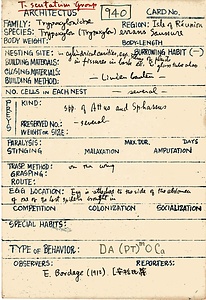 T. scutatum Group
ARCHITECTUS 940 CARD NO.
FAMILY: Trypoxylonidae REGION: Isle of Réunion
SPECIES: Trypoxylon (Trypoxylon) errans Saussure
BODY WEIGHT: BODY-LENGTH
NESTING SITE: BURROWING HABIT (—)
BUILDING MATERIALS: in fissures in bark
CLOSING MATERIALS:
BUILDING METHOD: — Linden bauten —
NO. CELLS IN EACH NEST — several
PREY
KIND: spp of Attus and Sphasus
PRESERVED NO.: — several
WEIGHT OR SIZE:
PARALYSIS: MAX. DUR. DAYS
STINGING MALAXATION AMPUTATION
TRASP. METHOD: on the wing
GRASPING:
ROUTE:
EGG LOCATION: Egg is attached to one side of the abdomen
of one of the last spiders brought in
COMPETITION COLONIZATION SOCIALIZATION
SPECIAL HABITS:
TYPE OF BEHAVIOR: DA (PT)ᵐ O Ca
OBSERVERS: REPORTERS:
E. Bordage (1912).